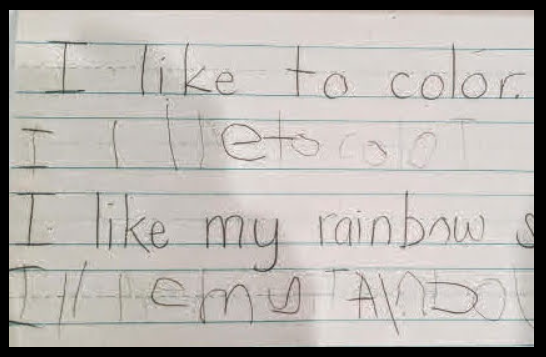 I like to color.
I l l l e to color
I like my rainbow s
I l l l e my rAinbo